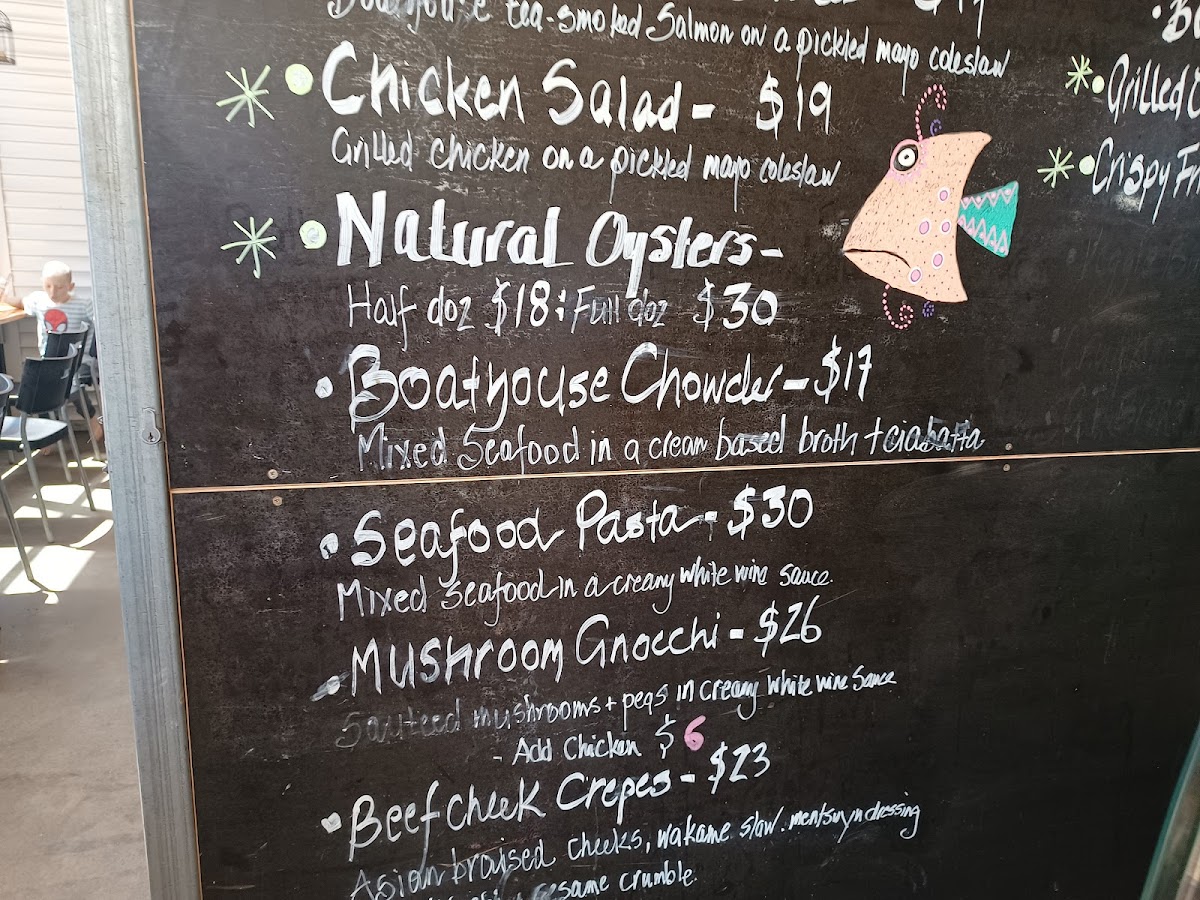 Boathouse tea-smoked Salmon on a pickled mayo coleslaw
Chicken Salad - $19
Grilled chicken on a pickled mayo coleslaw
Natural Oysters -
Half doz $18 : Full doz $30
Boathouse Chowder - $17
Mixed Seafood in a cream based broth + ciabatta
Seafood Pasta - $30
Mixed Seafood in a creamy white wine sauce.
Mushroom Gnocchi - $26
Sauteed mushrooms + peas in creamy white wine sauce
- Add Chicken $6
Beef Cheek Crepes - $23
Asian braised cheeks, wakame slaw.
sesame crumble.
Grilled
Crispy